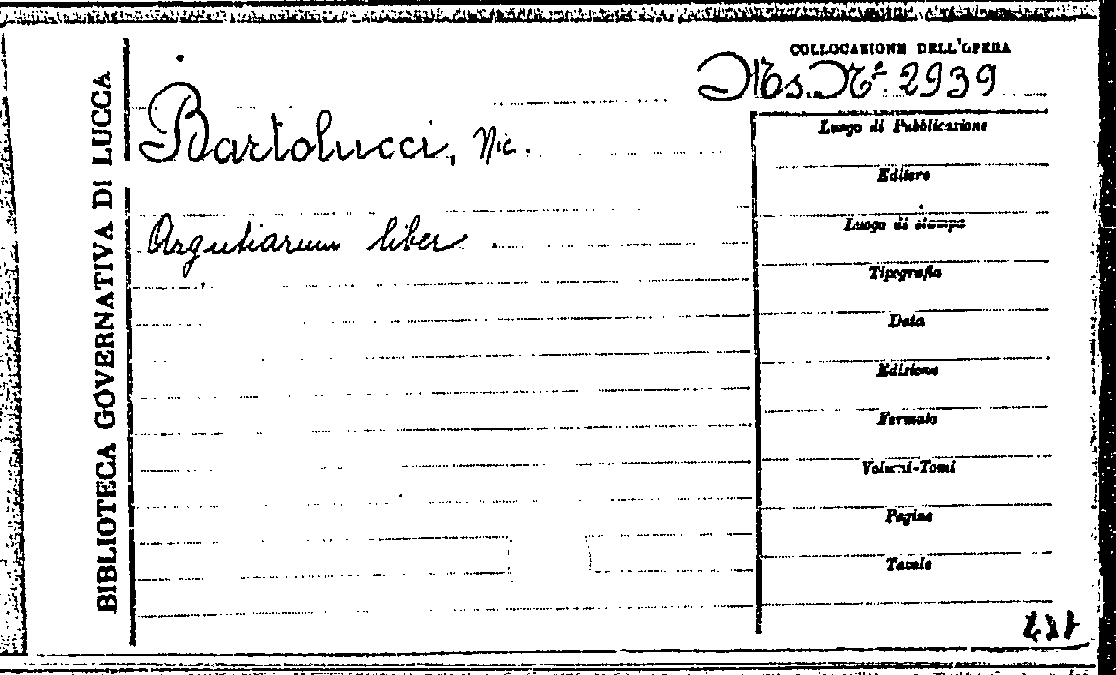 BIBLIOTECA GOVERNATIVA DI LUCCA
COLLOCAZIONE DELL'OPERA
Ms. Nº. 2939
Bartolucci, Nic.
Argutiarum liber.
Luogo di Pubblicazione
Editore
Luogo di stampa
Tipografia
Data
Edizione
Formato
Volumi-Tomi
Pagine
Tavole